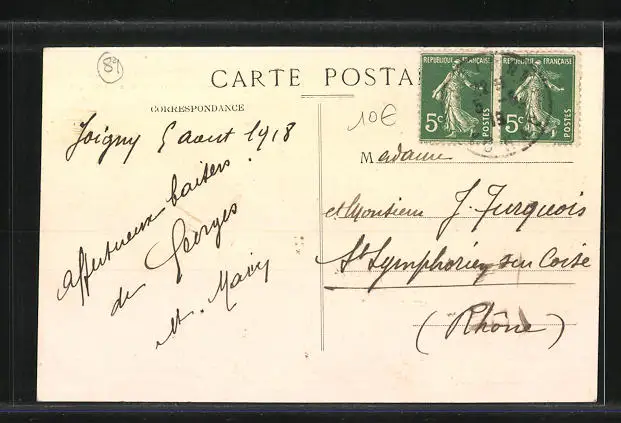 89
CARTE POSTA
REPUBLIQUE FRANÇAISE
5c
POSTES
REPUBLIQUE FRANÇAISE
5c
POSTES
CORRESPONDANCE
10€
Joigny 5 aout 1918
Affectueux baisers
de Georges
et Mary
Madame
et Monsieur J. Jurquois
St Symphorien sur Coise
(Rhône)